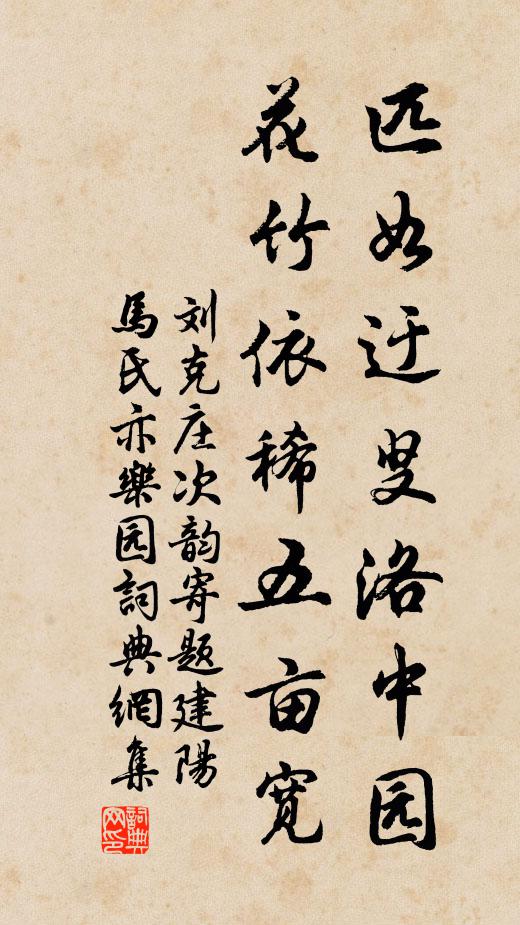 匹如迂叟洛中园
花竹依稀五亩宽
刘克庄次韵寄题建陽
馬氏亦樂园詞典網集
詞典
网印